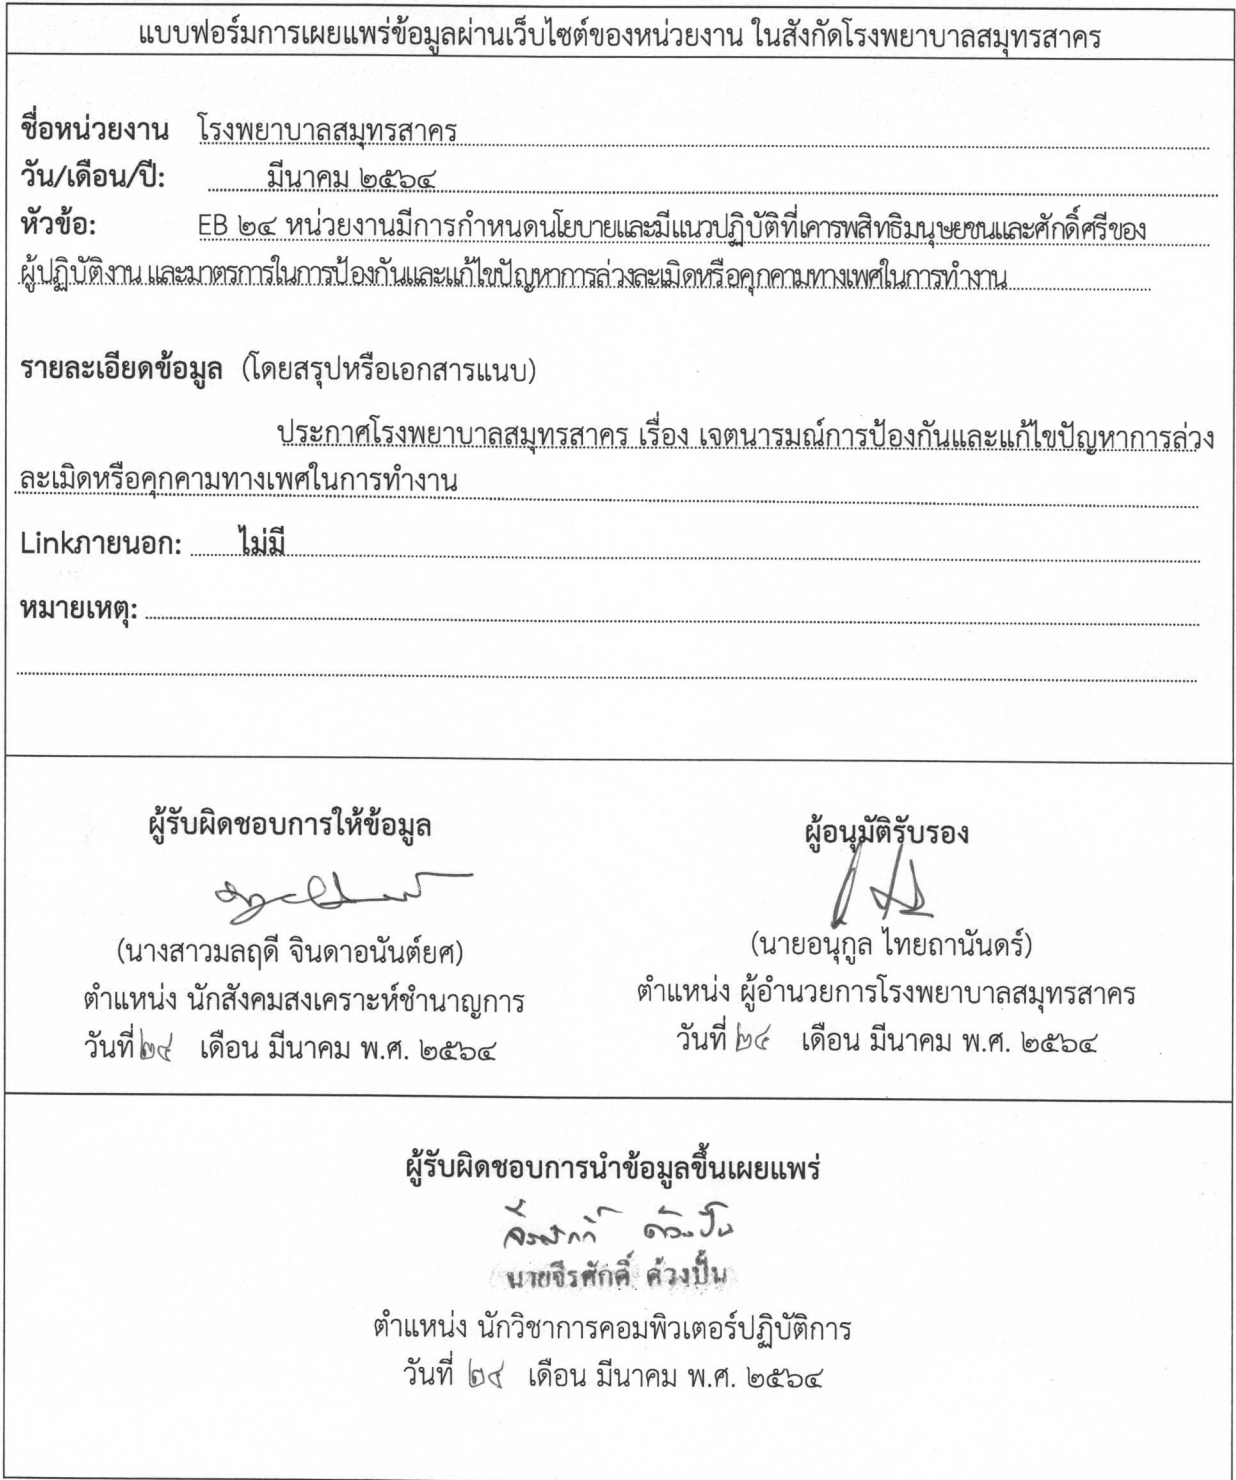 แบบฟอร์มการเผยแพร่ข้อมูลผ่านเว็บไซต์ของหน่วยงาน ในสังกัดโรงพยาบาลสมุทรสาคร
ชื่อหน่วยงาน โรงพยาบาลสมุทรสาคร
วัน/เดือน/ปี: มีนาคม ๒๕๖๔
หัวข้อ: EB ๒๔ หน่วยงานมีการกำหนดนโยบายและมีแนวปฏิบัติที่เคารพสิทธิมนุษยชนและศักดิ์ศรีของ
ผู้ปฏิบัติงาน และมาตรการในการป้องกันและแก้ไขปัญหาการล่วงละเมิดหรือคุกคามทางเพศในการทำงาน
รายละเอียดข้อมูล (โดยสรุปหรือเอกสารแนบ)
ประกาศโรงพยาบาลสมุทรสาคร เรื่อง เจตนารมณ์การป้องกันและแก้ไขปัญหาการล่วง
ละเมิดหรือคุกคามทางเพศในการทำงาน
Linkภายนอก: ไม่มี
หมายเหตุ:
ผู้รับผิดชอบการให้ข้อมูล
(นางสาวมลฤดี จินดาอนันต์ยศ)
ตำแหน่ง นักสังคมสงเคราะห์ชำนาญการ
วันที่ ๒๔ เดือน มีนาคม พ.ศ. ๒๕๖๔
ผู้อนุมัติรับรอง
(นายอนุกูล ไทยถานันดร์)
ตำแหน่ง ผู้อำนวยการโรงพยาบาลสมุทรสาคร
วันที่ ๒๔ เดือน มีนาคม พ.ศ. ๒๕๖๔
ผู้รับผิดชอบการนำข้อมูลขึ้นเผยแพร่
จีรศักดิ์ ด้วงปั้น
นายจีรศักดิ์ ด้วงปั้น
ตำแหน่ง นักวิชาการคอมพิวเตอร์ปฏิบัติการ
วันที่ ๒๔ เดือน มีนาคม พ.ศ. ๒๕๖๔